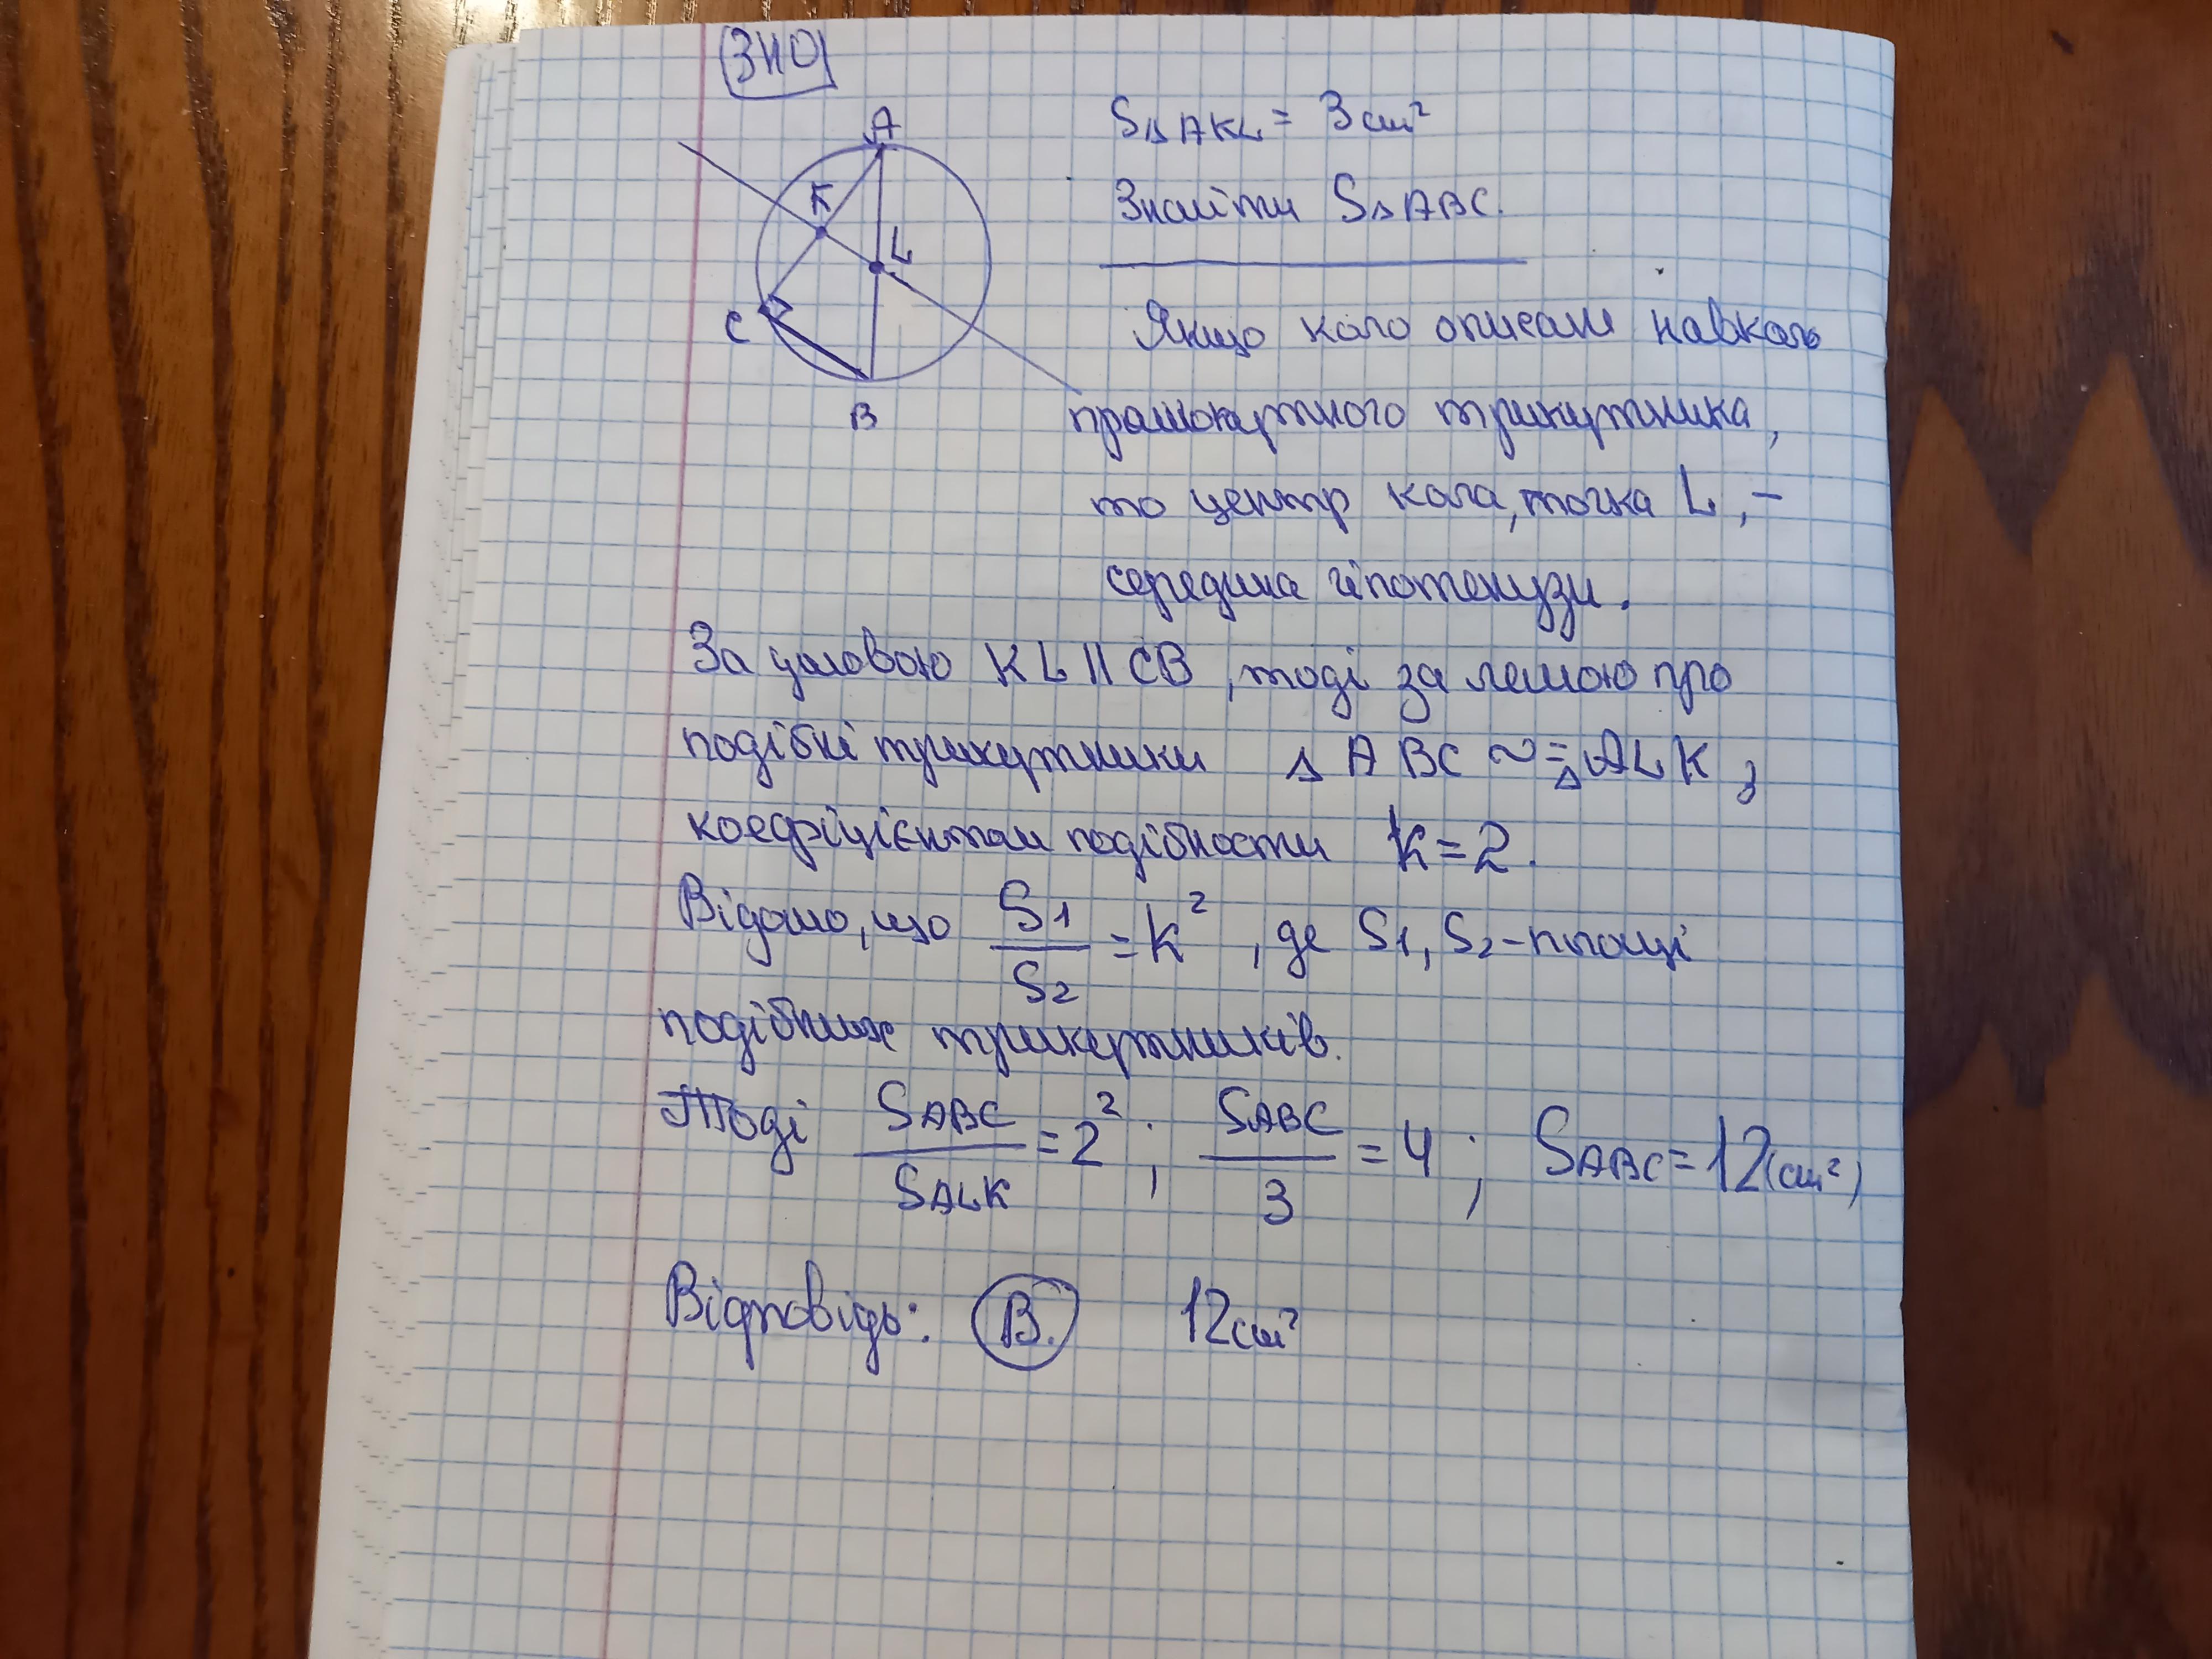 ЗНО
A
K
L
C
B
S△AKL = 3см²
Знайти S△ABC.
Якщо коло описане навколо
прямокутного трикутника,
то центр кола, точка L, –
середина гіпотенузи.
За умовою KL || CB, тоді за лемою про
подібні трикутники △ABC ~ △ALK з
коефіцієнтом подібности k=2.
Відомо, що S1/S2 = k², де S1, S2 – площі
подібних трикутників.
Тоді SABC/SALK = 2²; SABC/3 = 4; SABC = 12(см²)
Відповідь: В. 12см²